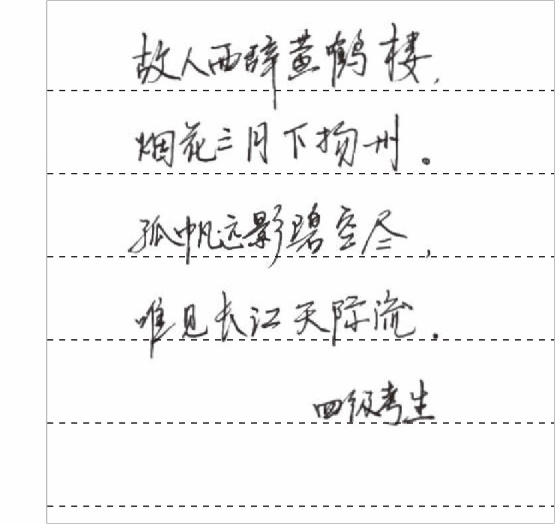 故人西辞黄鹤楼，
烟花三月下扬州。
孤帆远影碧空尽，
唯见长江天际流。
四级考生